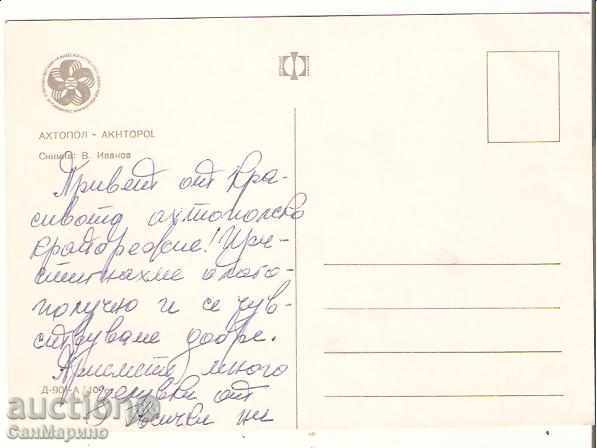 АХТОПОЛ - AKHTOPOL
Снимка: В. Иванов
Привет от кра-
сивото ахтополско
крайморение! При-
стигнахме благо-
получно и се чув-
ствуваме добре.
Приемете много
Д-90 -А
целувки от
всички ни
auction
СанМарино